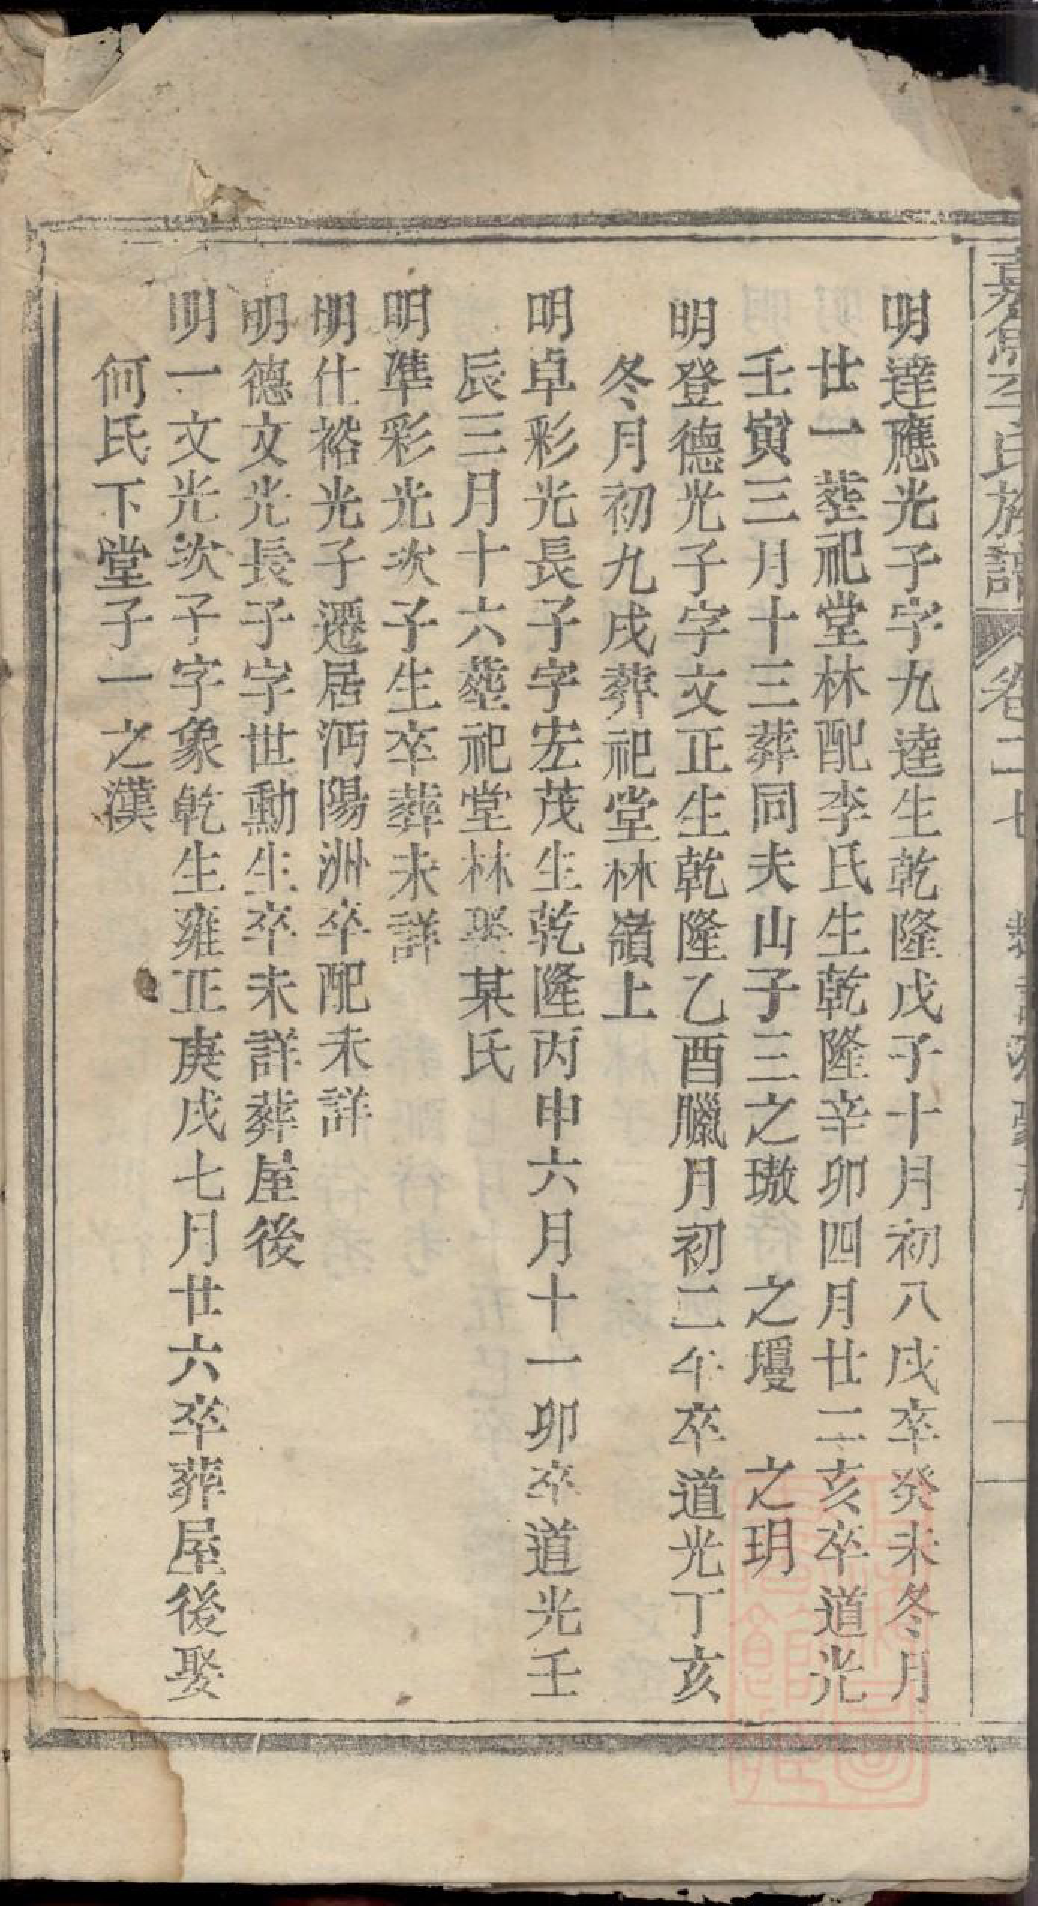 李氏族譜 卷二
明達應光子字九達生乾隆戊子十月初八戌卒癸未冬月
廿一葬祀堂林配李氏生乾隆辛卯四月廿二亥卒道光
壬寅三月十三葬同夫山子三之璈 之瓊 之玥
明登德光子字文正生乾隆乙酉臘月初二午卒道光丁亥
冬月初九戌葬祀堂林嶺上
明卓彩光長子字宏茂生乾隆丙申六月十一卯卒道光壬
辰三月十六葬祀堂林娶某氏
明準彩光次子生卒葬未詳
明仕裕光子遷居沔陽洲卒配未詳
明德文光長子字世勳生卒未詳葬屋後
明一文光次子字象乾生雍正庚戌七月廿六卒葬屋後娶
何氏下堂子一之漢